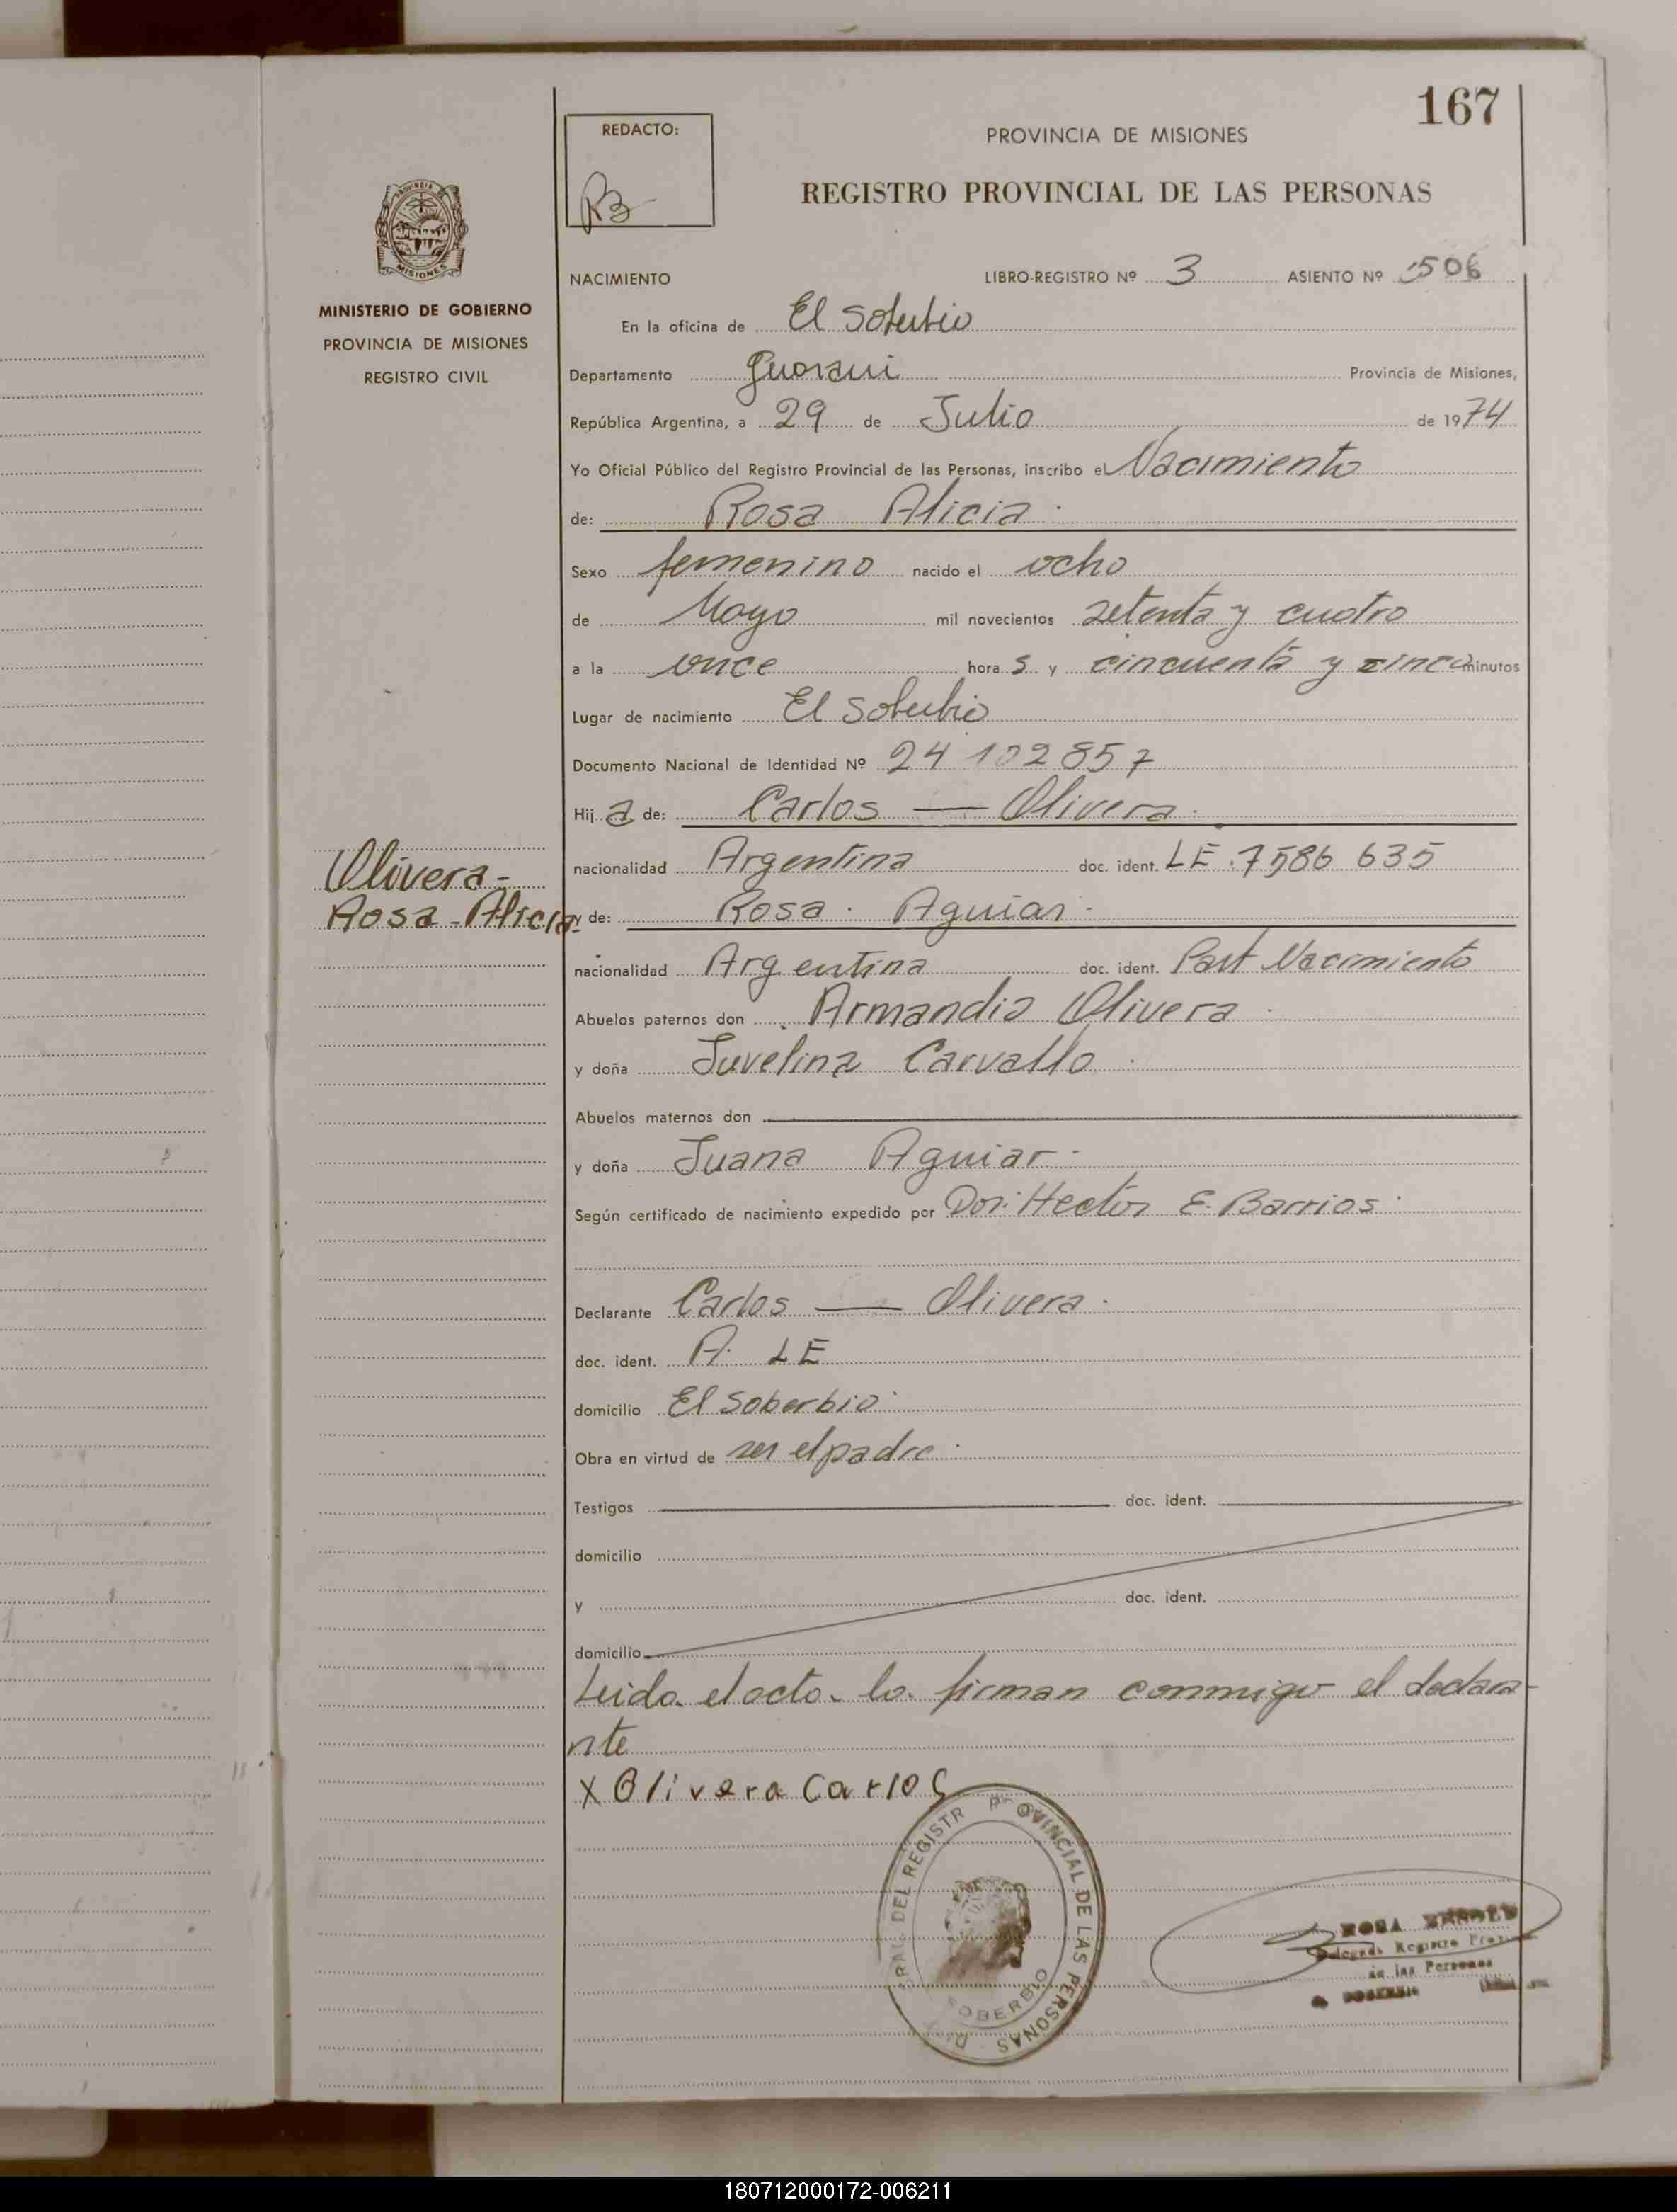 167
REDACTO:
PROVINCIA DE MISIONES
REGISTRO PROVINCIAL DE LAS PERSONAS
MISIONES
MINISTERIO DE GOBIERNO
PROVINCIA DE MISIONES
REGISTRO CIVIL
NACIMIENTO LIBRO-REGISTRO Nº 3 ASIENTO Nº 506
En la oficina de El Soberbio
Departamento Guarani Provincia de Misiones,
República Argentina, a 29 de Julio de 1974
Yo Oficial Público del Registro Provincial de las Personas, inscribo el Nacimiento
de: Rosa Alicia
Sexo femenino nacido el ocho
de Mayo mil novecientos setenta y cuatro
a la once hora s y cincuenta y cinco minutos
Lugar de nacimiento El Soberbio
Documento Nacional de Identidad Nº 24 102 857
Hij a de: Carlos — Olivera
nacionalidad Argentina doc. ident. LE 7586 635
Olivera-
Rosa-Alicia-
y de: Rosa Aguiar
nacionalidad Argentina doc. ident. Part Nacimiento
Abuelos paternos don Armandio Olivera
y doña Juvelina Carvallo
Abuelos maternos don
y doña Juana Aguiar
Según certificado de nacimiento expedido por Dor: Hector E. Barrios
Declarante Carlos — Olivera
doc. ident. A. LE
domicilio El Soberbio
Obra en virtud de ser el padre
Testigos doc. ident.
domicilio
y doc. ident.
domicilio
Leida el acta la firman conmigo el declara-
nte
X Olivera Carlos
DEL REGISTR PROVINCIAL DE LAS PERSONAS
SOBERBIO
ROSA
Delegada Registro Prov.
de las Personas
180712000172-006211